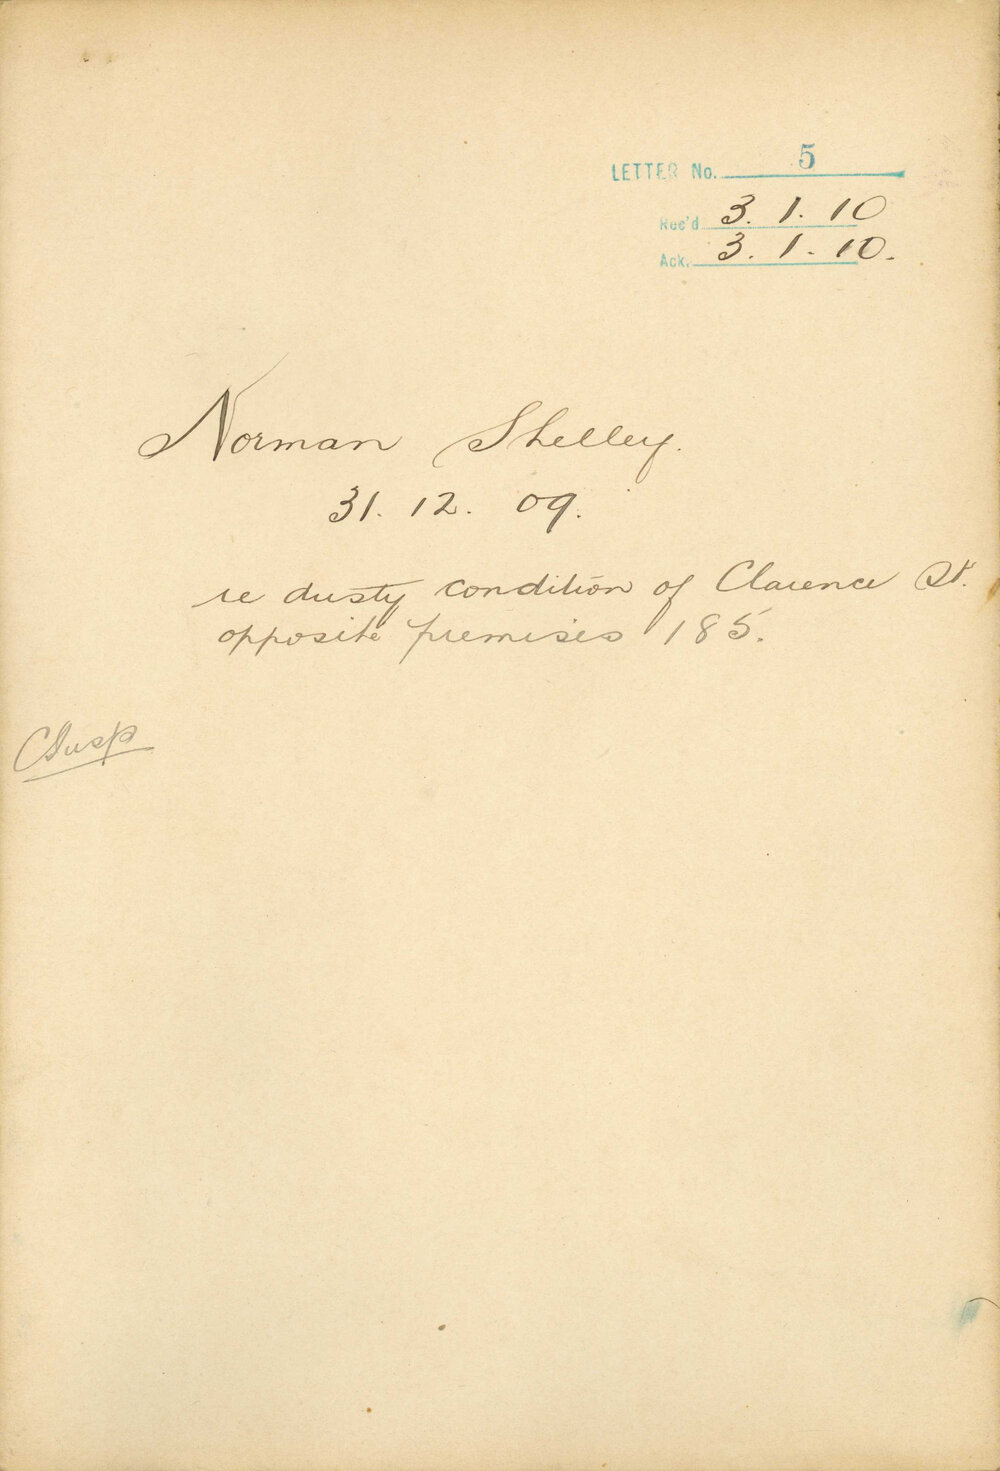 LETTER No. 5
Rec'd 3. 1. 10
Ack. 3. 1. 10.
Norman Shelley.
31. 12. 09.
re dusty condition of Clarence St.
opposite premises 185.
C Insp